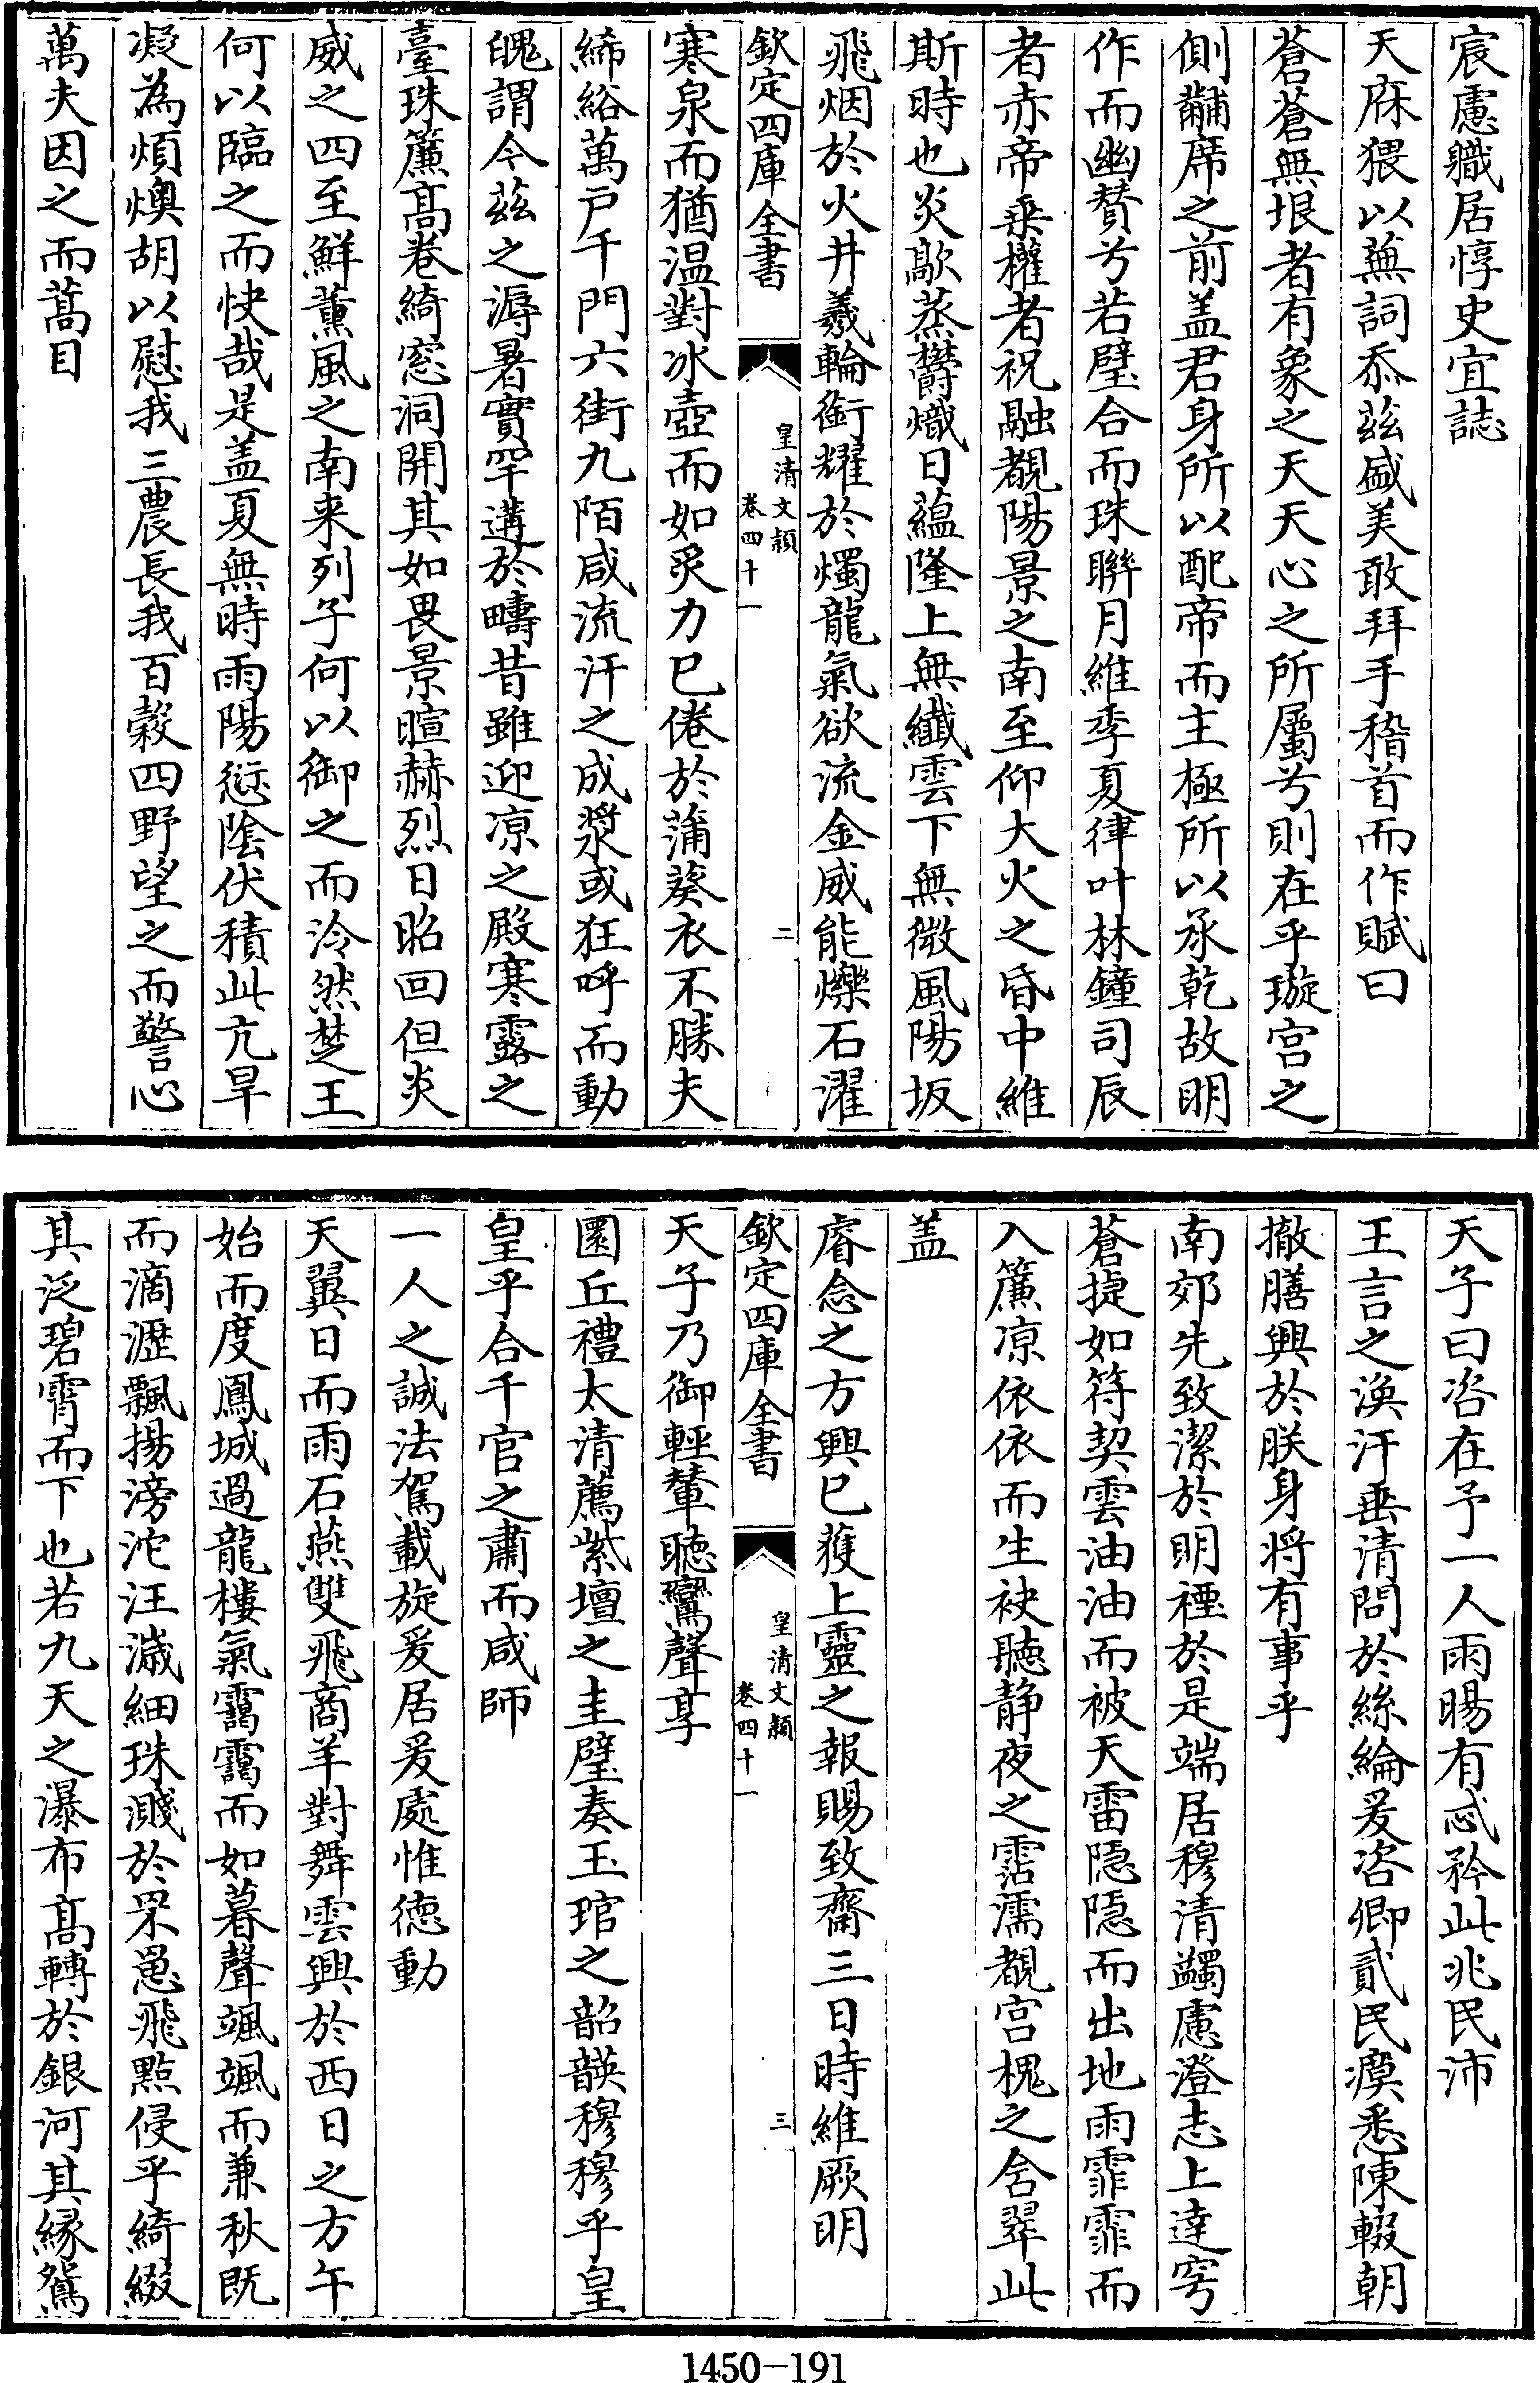 宸慮職居惇史宜誌
天庥猥以蕪詞忝茲盛美敢拜手稽首而作賦曰
蒼蒼無垠者有象之天天心之所屬兮則在乎璇宮之
側黼席之前盖君身所以配帝而主極所以承乾故明
作而幽贊兮若璧合而珠聯月維季夏律叶林鐘司辰
者赤帝乗權者祝融覩陽景之南至仰大火之昏中維
斯時也炎歊蒸欝熾日蘊隆上無纖雲下無微風陽坂
飛烟於火井羲輪銜耀於燭龍氣欲流金威能爍石濯
欽定四庫全書
皇清文穎
卷四十一
二
寒泉而猶温對冰壺而如炙力已倦於蒲葵衣不勝夫
絺綌萬戸千門六街九陌咸流汗之成漿或狂呼而動
魄謂今茲之溽暑實罕遘於疇昔雖迎凉之殿寒露之
臺珠簾高巻綺窓洞開其如畏景暄赫烈日昭回但炎
威之四至鮮薫風之南来列子何以御之而泠然楚王
何以臨之而快哉是盖夏無時雨陽愆陰伏積此亢旱
凝為煩燠胡以慰我三農長我百穀四野望之而警心
萬夫因之而蒿目
天子曰咨在予一人雨暘有忒矜此兆民沛
王言之渙汗垂清問於絲綸爰咨卿貳民瘼悉陳輟朝
撤膳興於朕身将有事乎
南郊先致潔於明禋於是端居穆清蠲慮澄志上達穹
蒼捷如符契雲油油而被天雷隠隠而出地雨霏霏而
入簾凉依依而生袂聽静夜之霑濡覩宫槐之含翠此
盖
睿念之方興已獲上靈之報賜致齋三日時維厥明
欽定四庫全書
皇清文穎
卷四十一
三
天子乃御輕輦聴鸞聲享
圜丘禮太清薦紫壇之圭璧奏玉琯之韶韺穆穆乎皇
皇乎合千官之肅而咸師
一人之誠法駕載旋爰居爰處惟徳動
天翼日而雨石燕雙飛商羊對舞雲興於西日之方午
始而度鳳城過龍樓氣靄靄而如暮聲颯颯而兼秋既
而滴瀝飄揚滂沱汪濊細珠濺於罘罳飛點侵乎綺綴
其泛碧霄而下也若九天之瀑布髙轉於銀河其縁鴛
1450－191